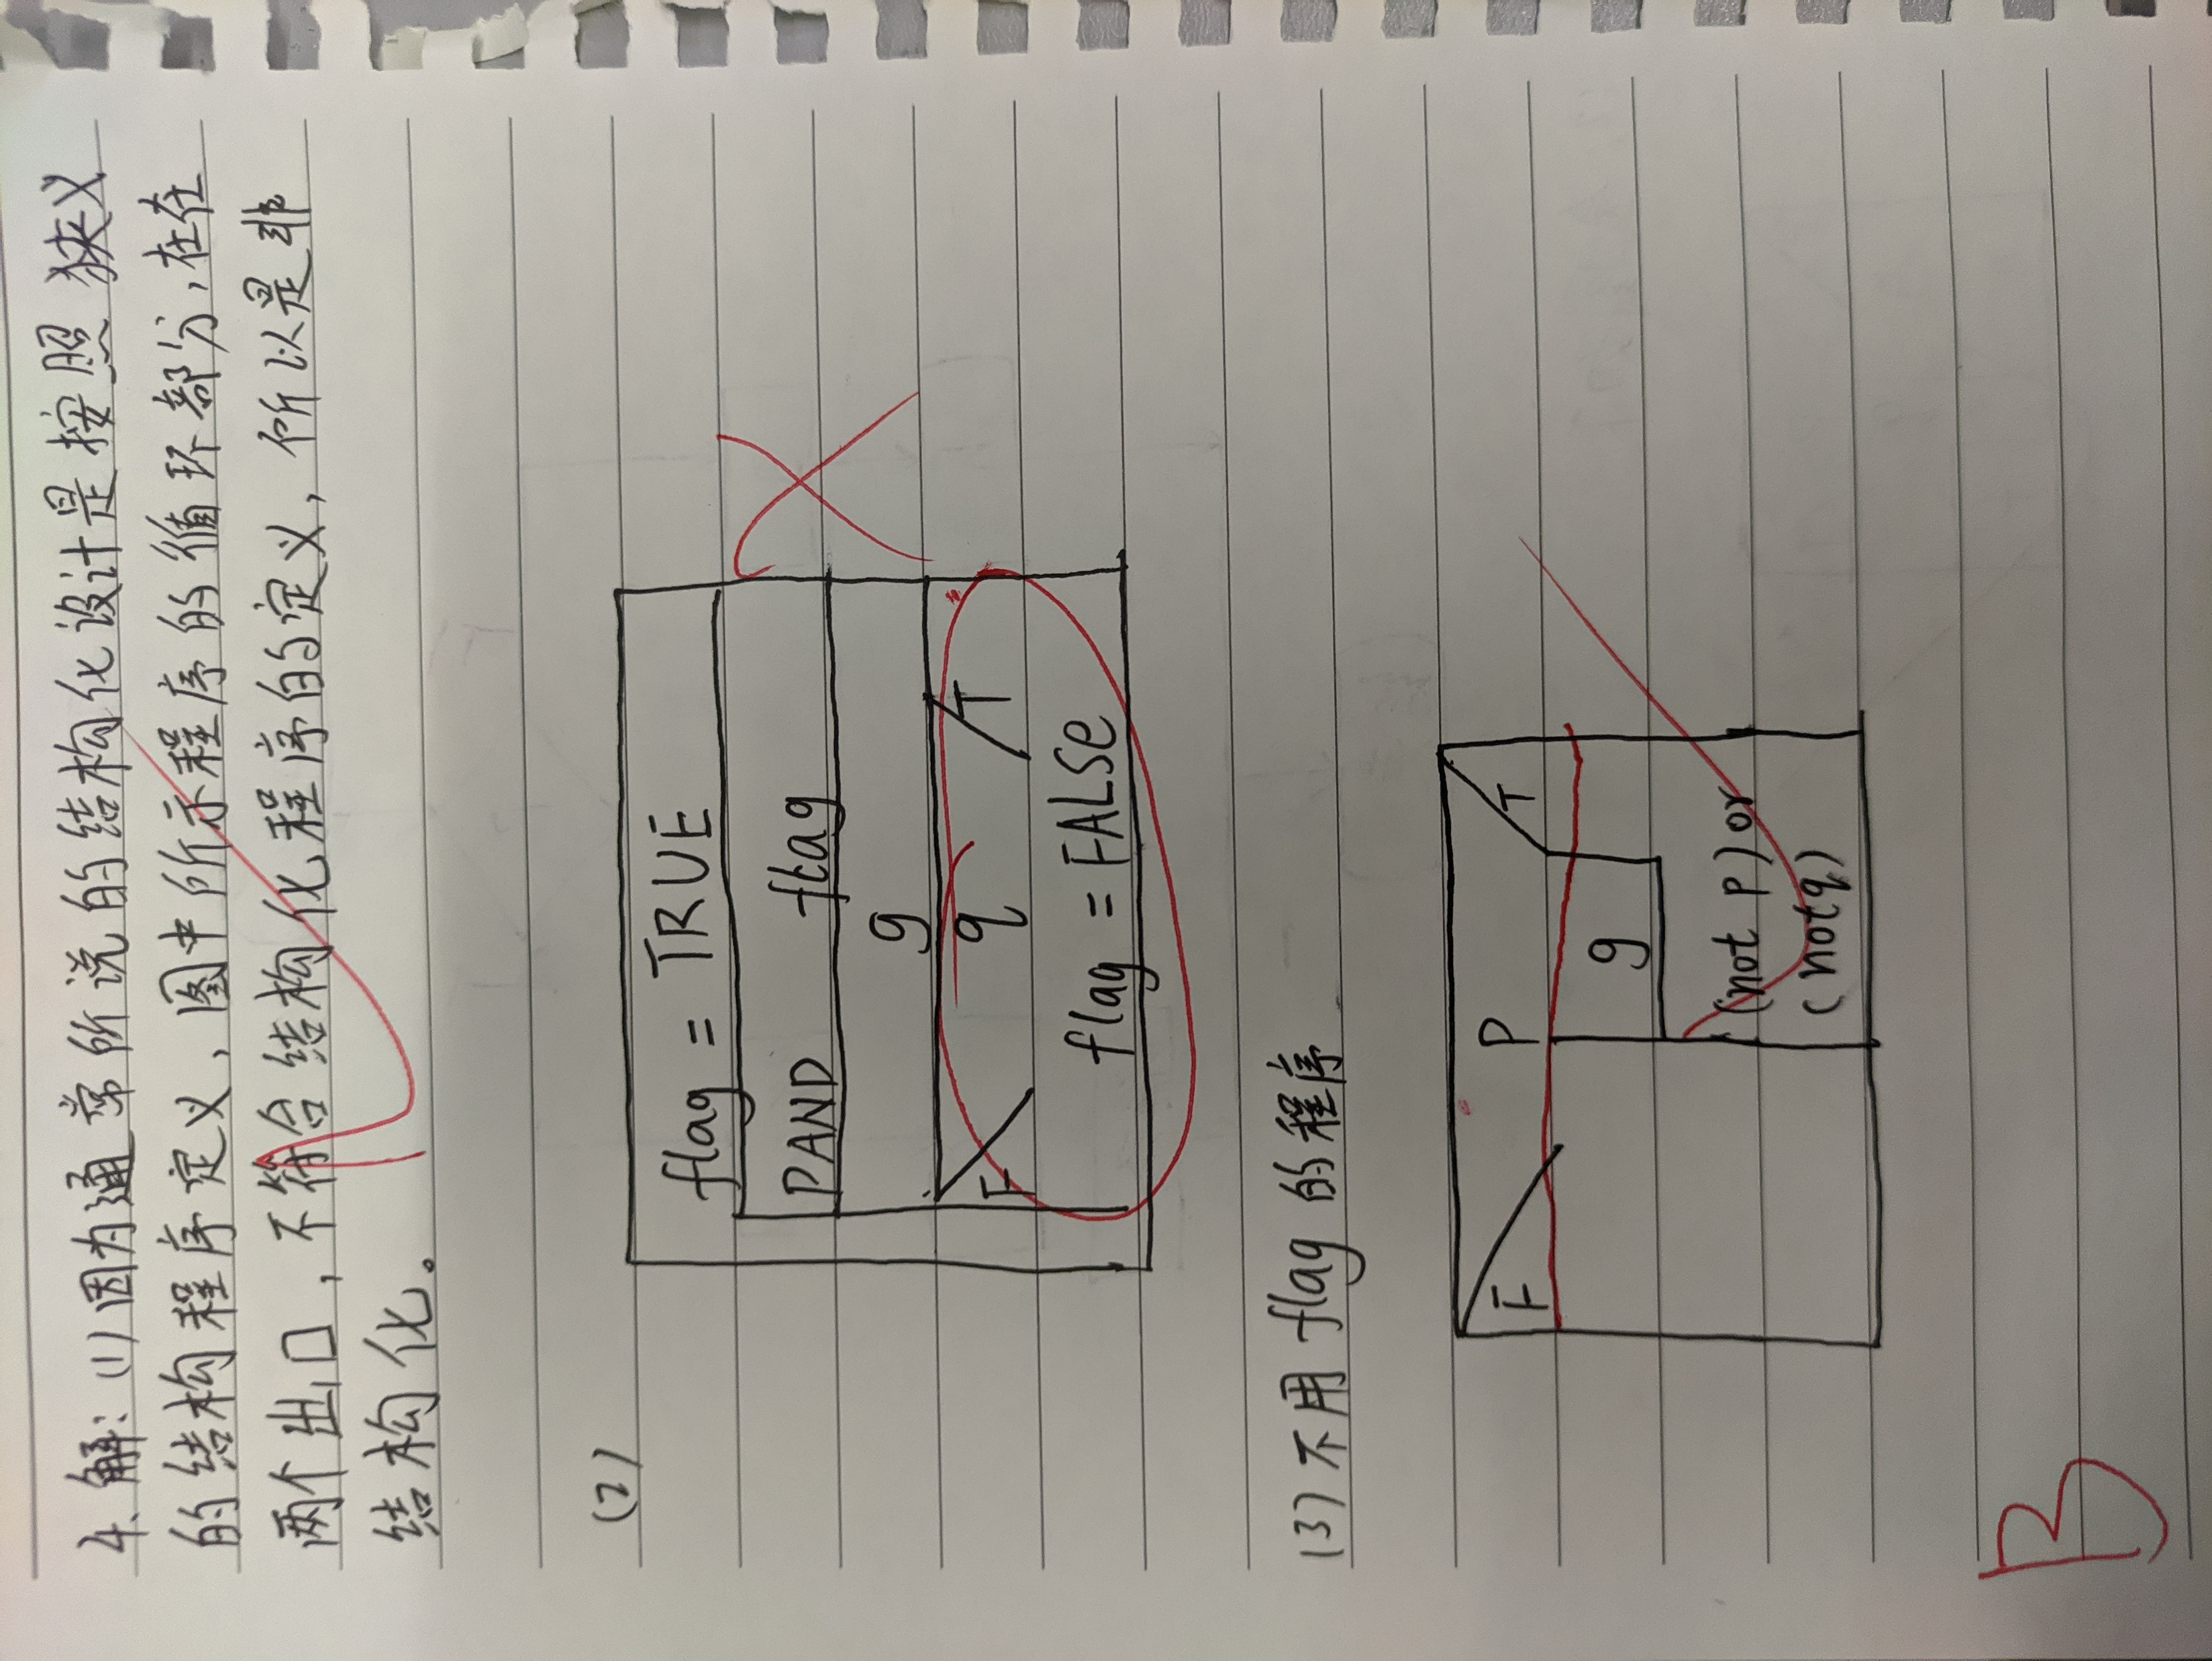 4.解:(1)因为通常所说的结构化设计是按照狭义
的结构程序定义,图中所示程序的循环部分,在在
两个出口,不符合结构化程序的定义,所以是非
结构化。
(2)
flag = TRUE
PAND flag
g
F q T
flag = FALSE
(3)不用flag的程序
F P T
g
(not P) or
(not q)
B